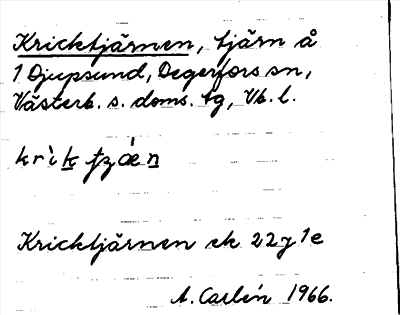 Kricktjärnen, tjärn å
1 Djupsund, Degerfors sn,
Västerb. s. doms. tg, Vb. l.
Kricktjärnen ek 22 J 1e
A. Carlén 1966.